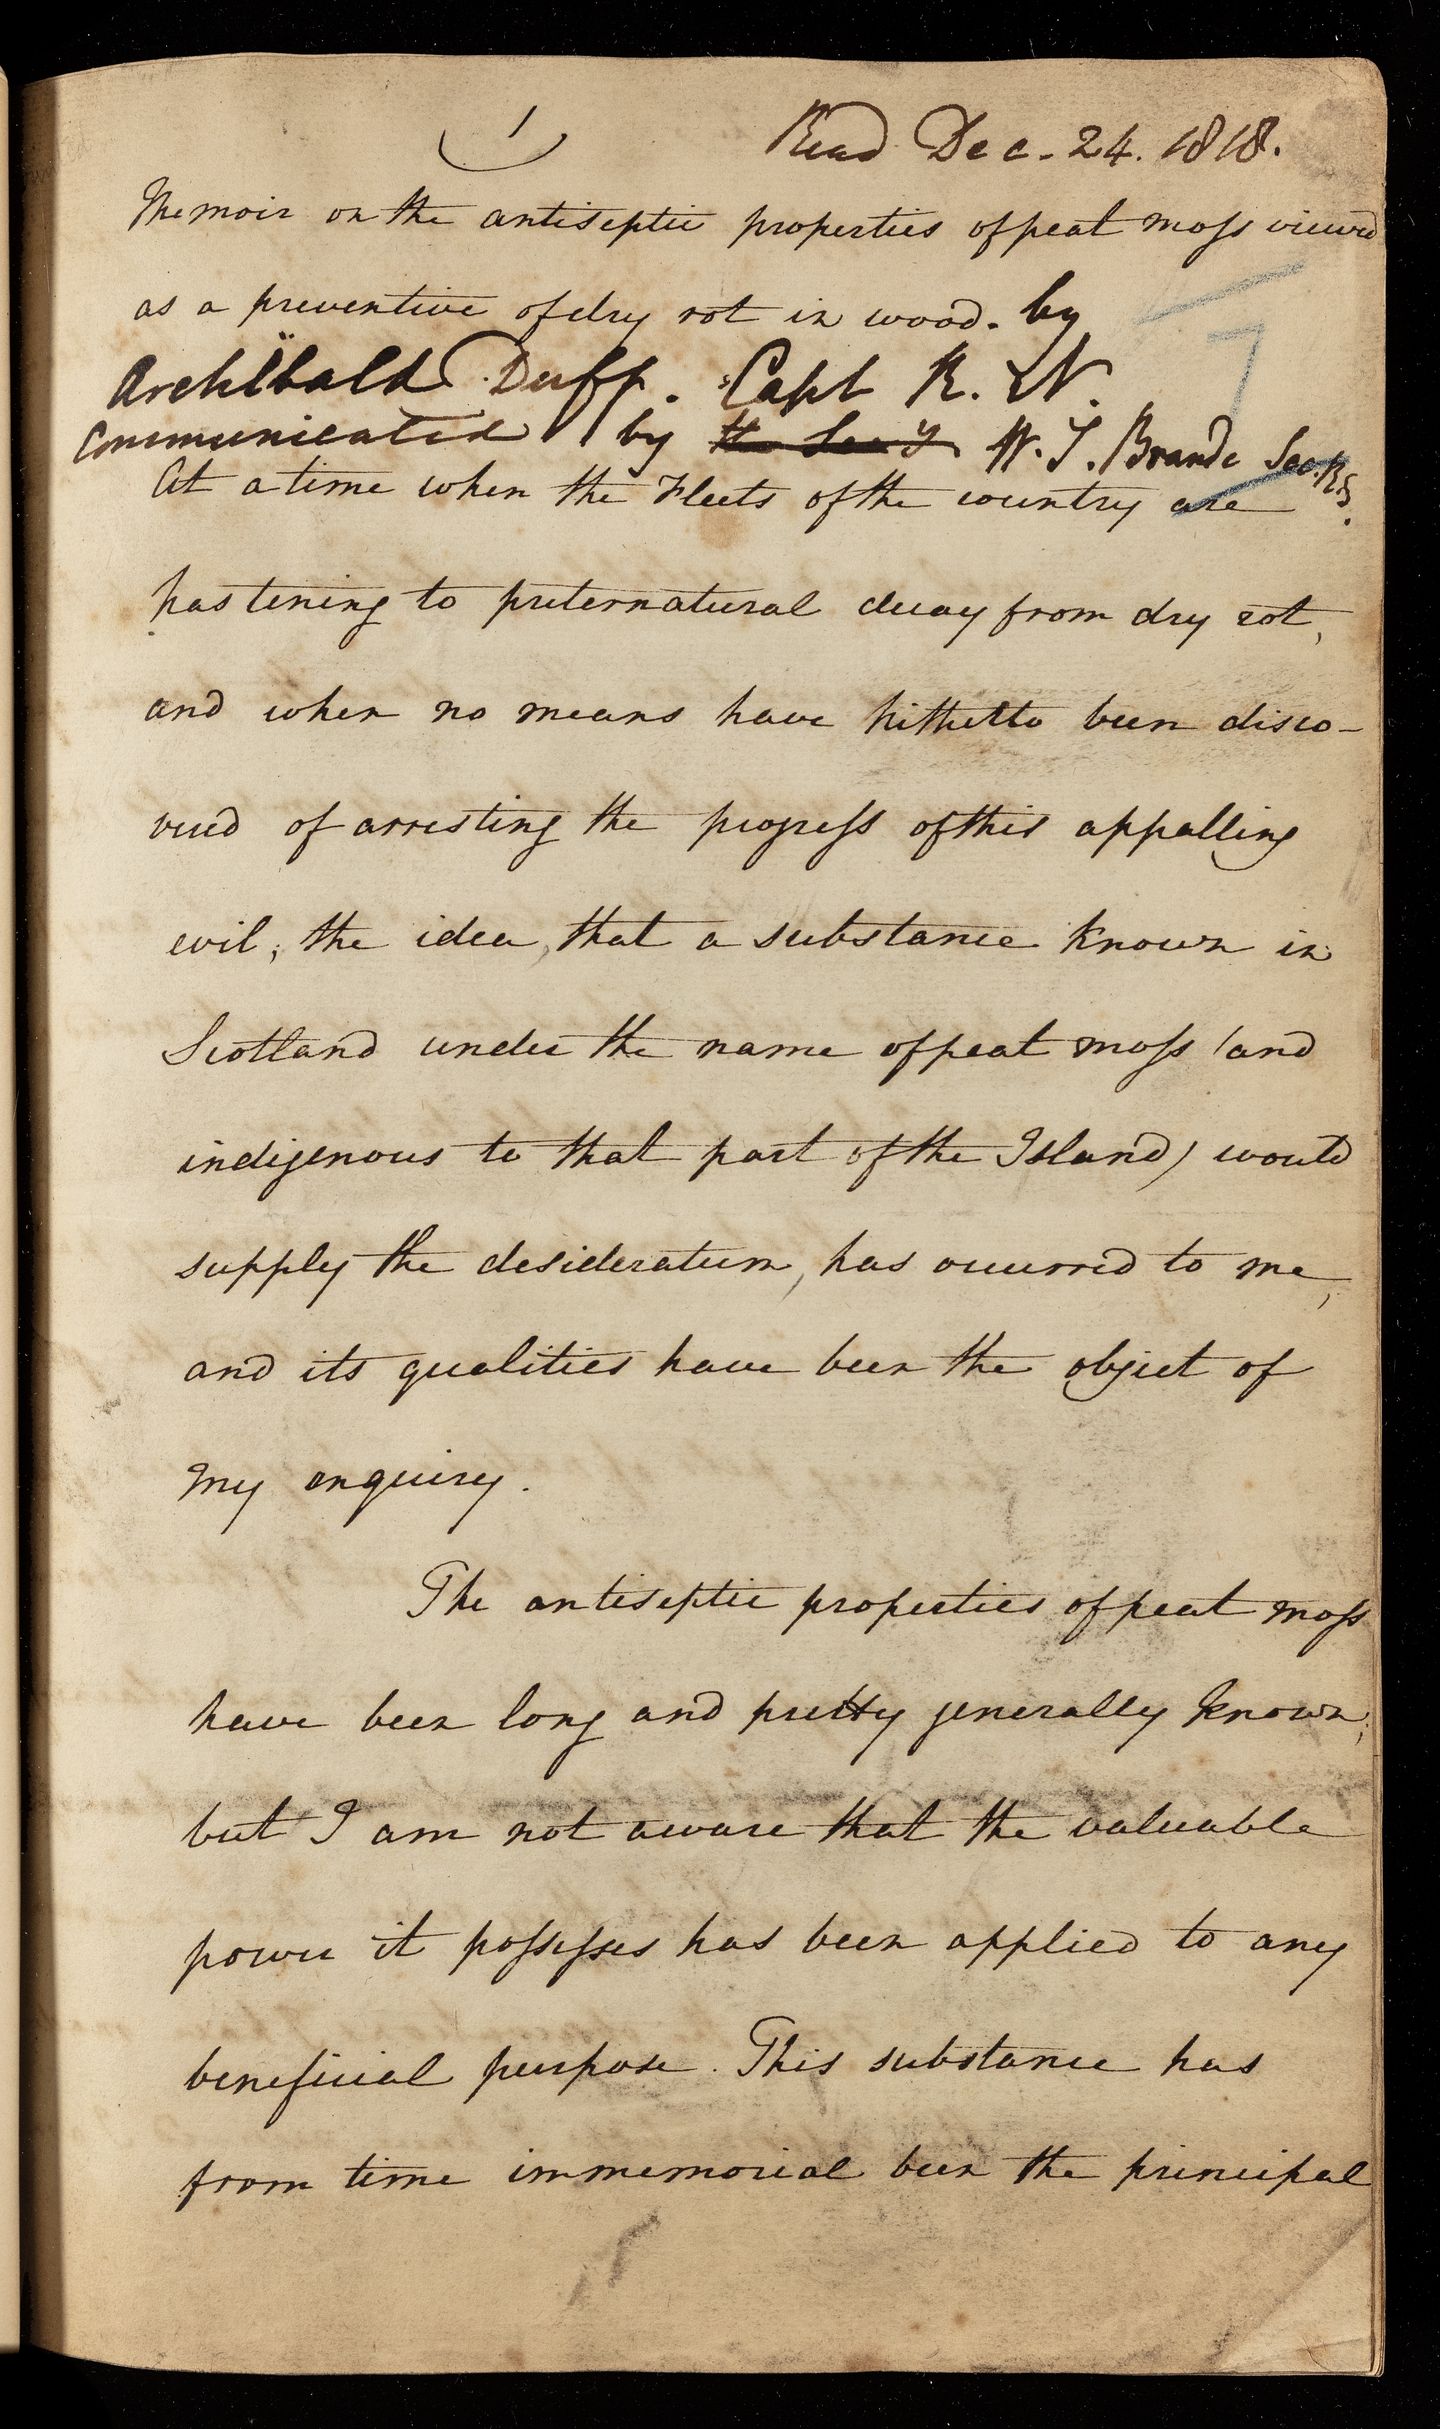 1
Read Dec. 24. 1818.
Memoir on the antiseptic properties of peat moss viewed
as a preventive of dry rot in wood. by
Archibald Duff. Capt R. N.
Communicated by the Sec.y W. T. Brande Sec. R.S.
7
At a time when the Fleets of the country are
hastening to preternatural decay from dry rot,
and when no means have hitherto been disco-
vered of arresting the progress of this appalling
evil; the idea, that a substance known in
Scotland under the name of peat moss (and
indigenous to that part of the Island) would
supply the desideratum, has occurred to me,
and its qualities have been the object of
my enquiry.
The antiseptic properties of peat moss
have been long and pretty generally known;
but I am not aware that the valuable
power it possesses has been applied to any
beneficial purpose. This substance has
from time immemorial been the principal